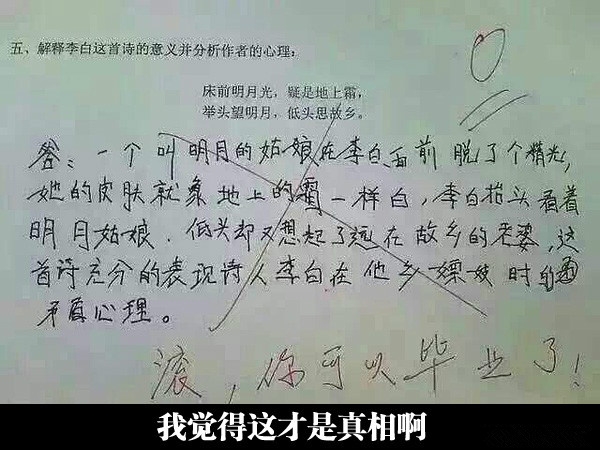 五、解释李白这首诗的意义并分析作者的心理：
床前明月光，疑是地上霜，
举头望明月，低头思故乡。
0
答：一个叫明月的姑娘在李白面前脱了个精光，
她的皮肤就象地上的霜一样白，李白抬头看着
明月姑娘．低头却又想起了远在故乡的老婆，这
首诗充分的表现诗人李白在他乡嫖妓时的
矛盾心理。
滚，你可以毕业了！
我觉得这才是真相啊